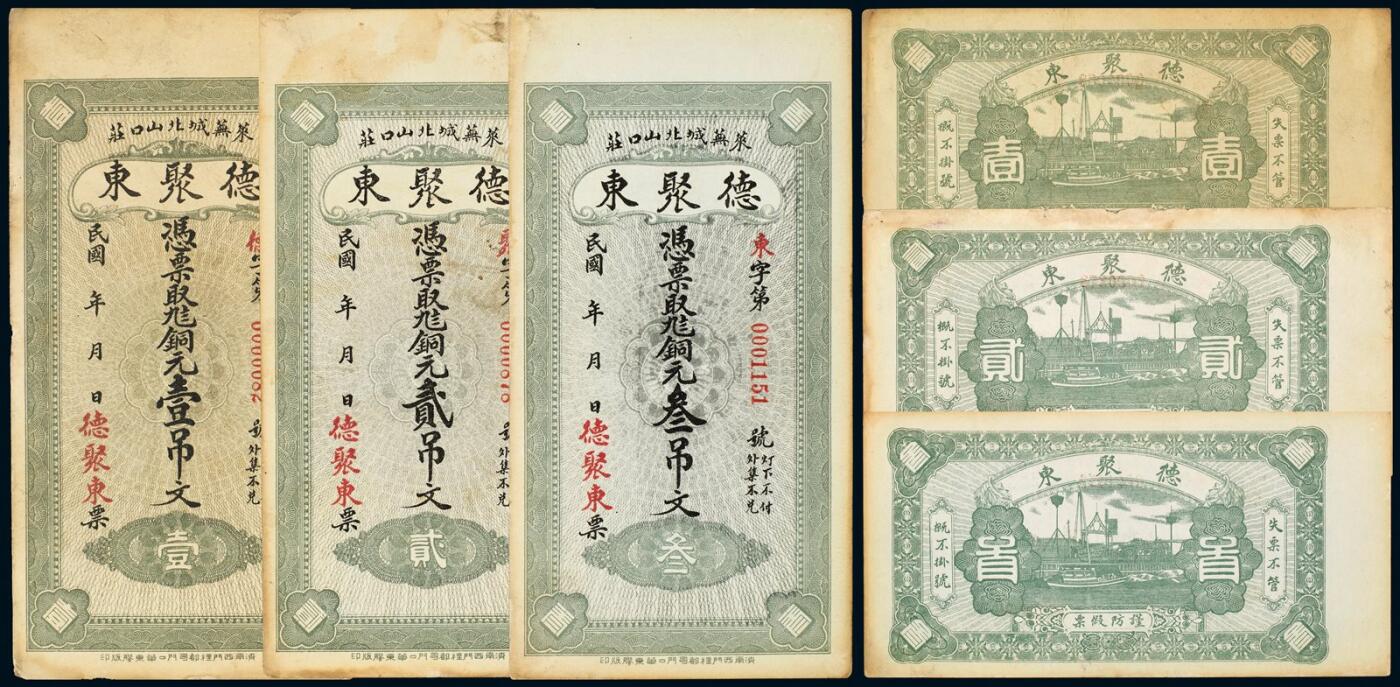 莱蕪城北山口莊
德聚東
憑票取九七銅元壹吊文
民國 年 月 日德聚東票
壹
莱蕪城北山口莊
德聚東
憑票取九七銅元貳吊文
民國 年 月 日德聚東票
外集不兑
貳
莱蕪城北山口莊
德聚東
東字第0001151號
灯下不付
外集不兑
憑票取九七銅元叁吊文
民國 年 月 日德聚東票
叁
德聚東
壹 壹
失票不管
概不掛號
德聚東
貳 貳
失票不管
概不掛號
德聚東
叁 叁
失票不管
概不掛號
謹防假票